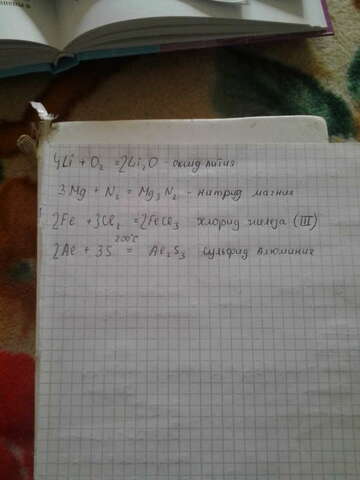 4Li + O₂ = 2Li₂O - оксид лития
3Mg + N₂ = Mg₃N₂ - нитрид магния
2Fe + 3Cl₂ = 2FeCl₃ хлорид железа (III)
200°C
2Al + 3S = Al₂S₃ сульфид алюминия